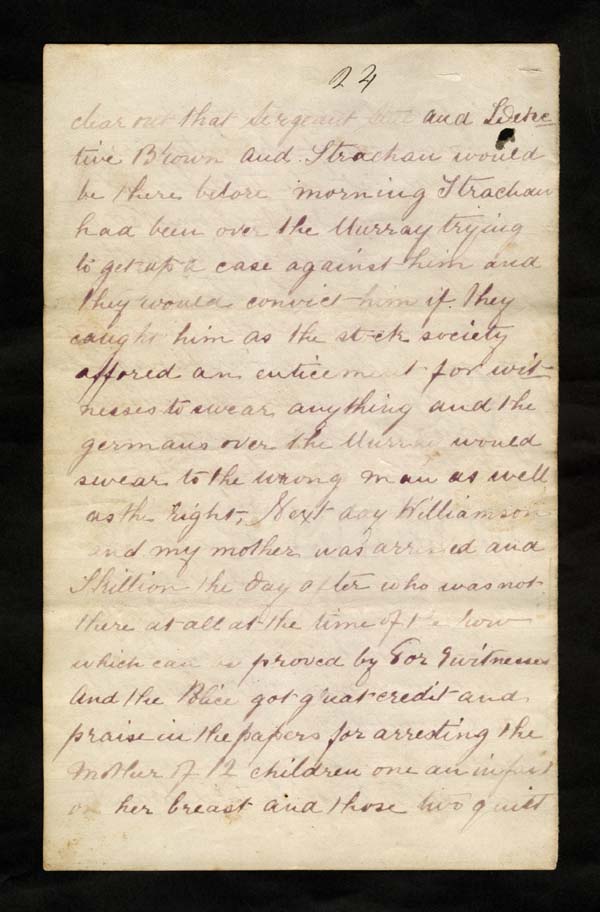 24
clear out that Sergeant and Detec
tive Brown and Strachan would
be there before morning Strachan
had been over the Murray trying
to get up a case against him and
they would convict him if they
caught him as the stock society
offored an enticement for wit
nesses to swear anything and the
germans over the Murray would
swear to the wrong man as well
as the right, Next day Williamson
and my mother was arrested and
Skillion the day after who was not
there at all at the time of the row
which can be proved by 8 or 9 witnesses
And the Police got great credit and
praise in the papers for arresting the
mother of 12 children one an infant
on her breast and those two quiet